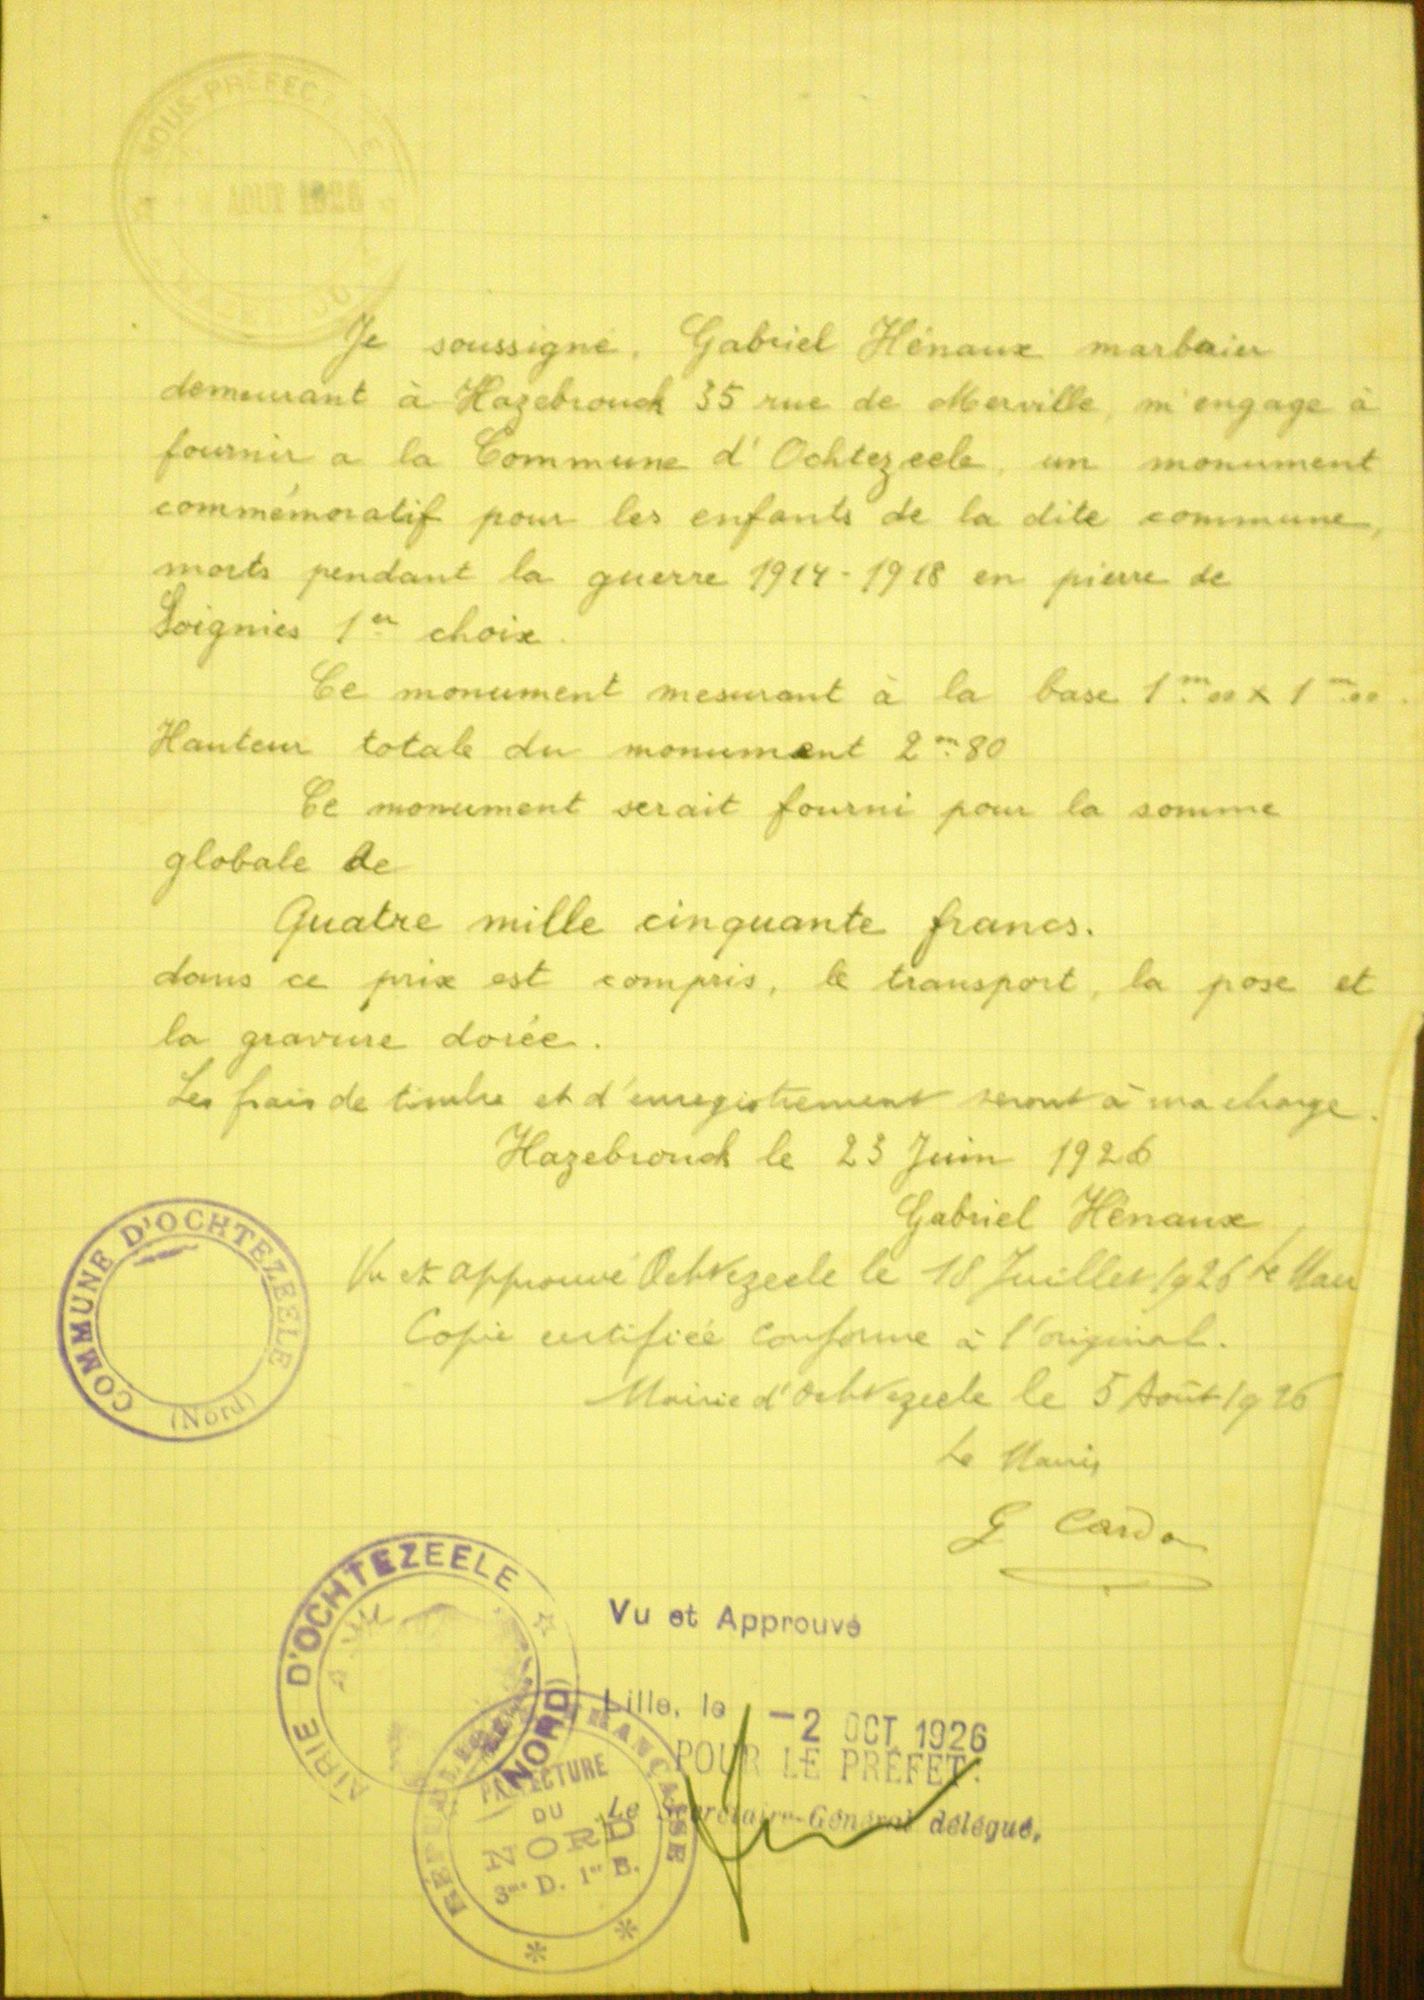 SOUS-PRÉFECTURE
AOUT 1926
Je soussigné, Gabriel Hénaux marbrier
demeurant à Hazebrouck 35 rue de Merville, m'engage à
fournir a la Commune d'Ochtezeele, un monument
commémoratif pour les enfants de la dite commune,
morts pendant la guerre 1914-1918 en pierre de
Soignies 1er choix.
Ce monument mesurant à la base 1m.00 x 1m.00.
Hauteur totale du monument 2m.80
Ce monument serait fourni pour la somme
globale de
Quatre mille cinquante francs.
dans ce prix est compris, le transport, la pose et
la gravure dorée.
Les frais de timbre et d'enregistrement seront à ma charge.
Hazebrouck le 23 Juin 1926
Gabriel Hénaux
Vu et approuvé Ochtezeele le 18 Juillet 1926 Le Maire
Copie certifiée conforme à l'original.
Mairie d'Ochtezeele le 5 Août 1926
Le Maire
G Cardo
COMMUNE D'OCHTEZEELE
(Nord)
MAIRIE D'OCHTEZEELE
(NORD)
Vu et Approuvé
Lille, le -2 OCT 1926
POUR LE PRÉFET:
Le Secrétaire-Général délégué,
RÉPUBLIQUE FRANÇAISE
PRÉFECTURE
DU
NORD
3me D. 1er B.